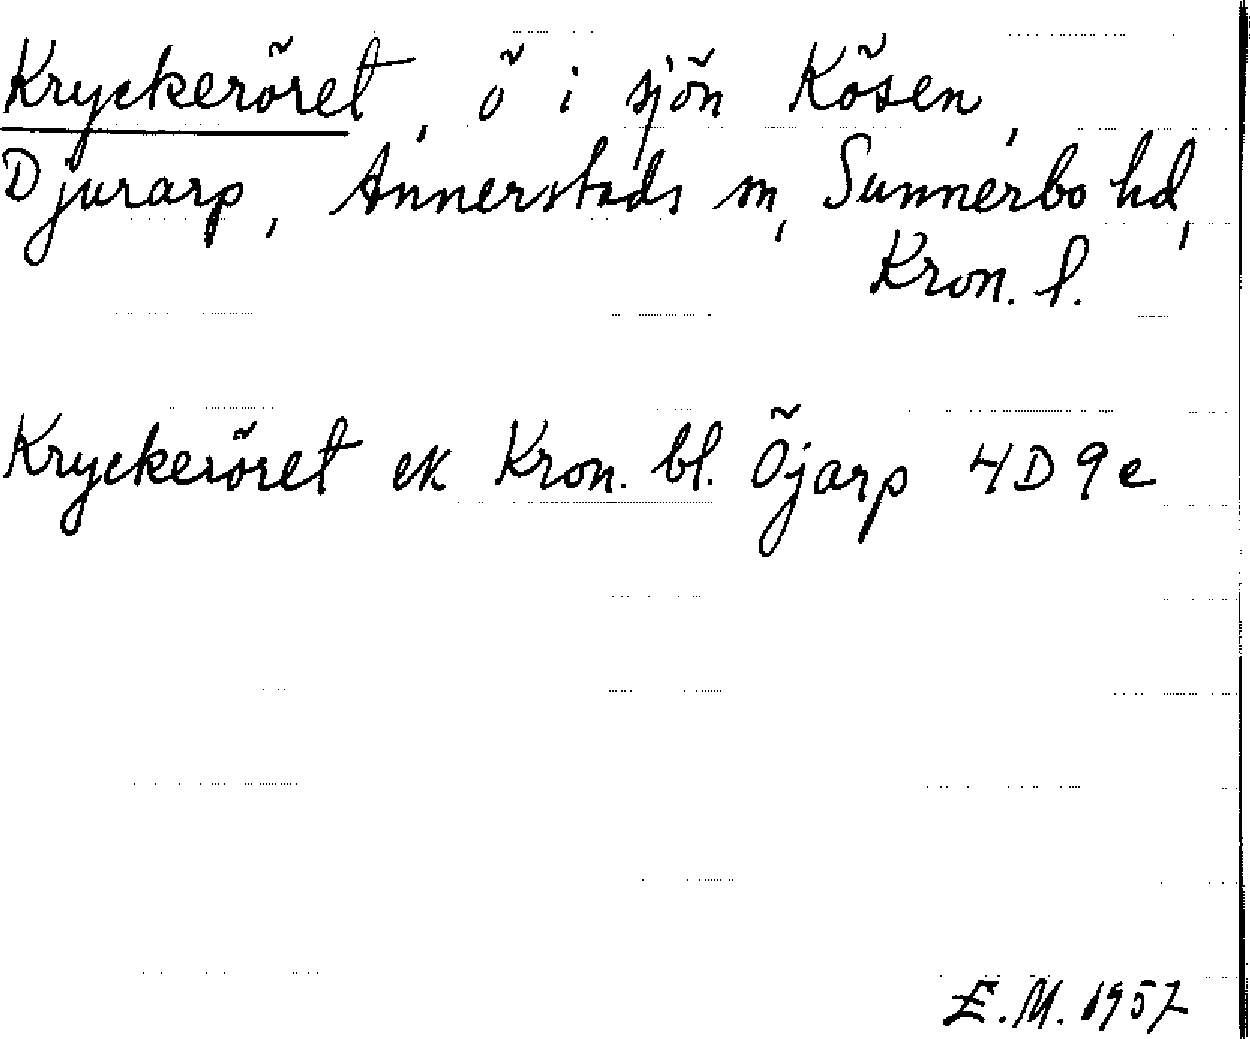 Kryckeröret, ö i sjön Kösen,
Djurarp, Annerstads sn, Sunnerbo hd,
Kron. l.
Kryckeröret ek Kron. bl. Öjarp 4D9e
E.M. 1957